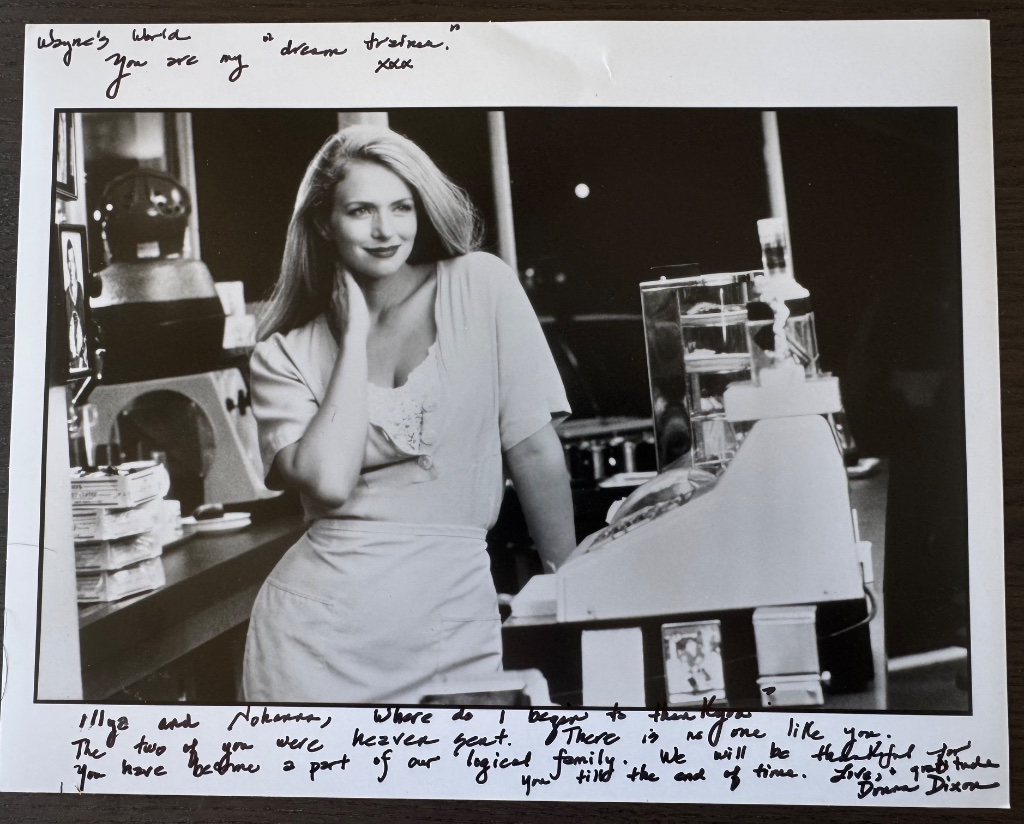 Wayne's World
You are my "dream trainer."
xxx
Illya and Johanna, Where do I begin to thank you?
The two of you were heaven sent. There is no one like you.
You have become a part of our logical family. We will be thankful for
you till the end of time. Love, & gratitude
Donna Dixon